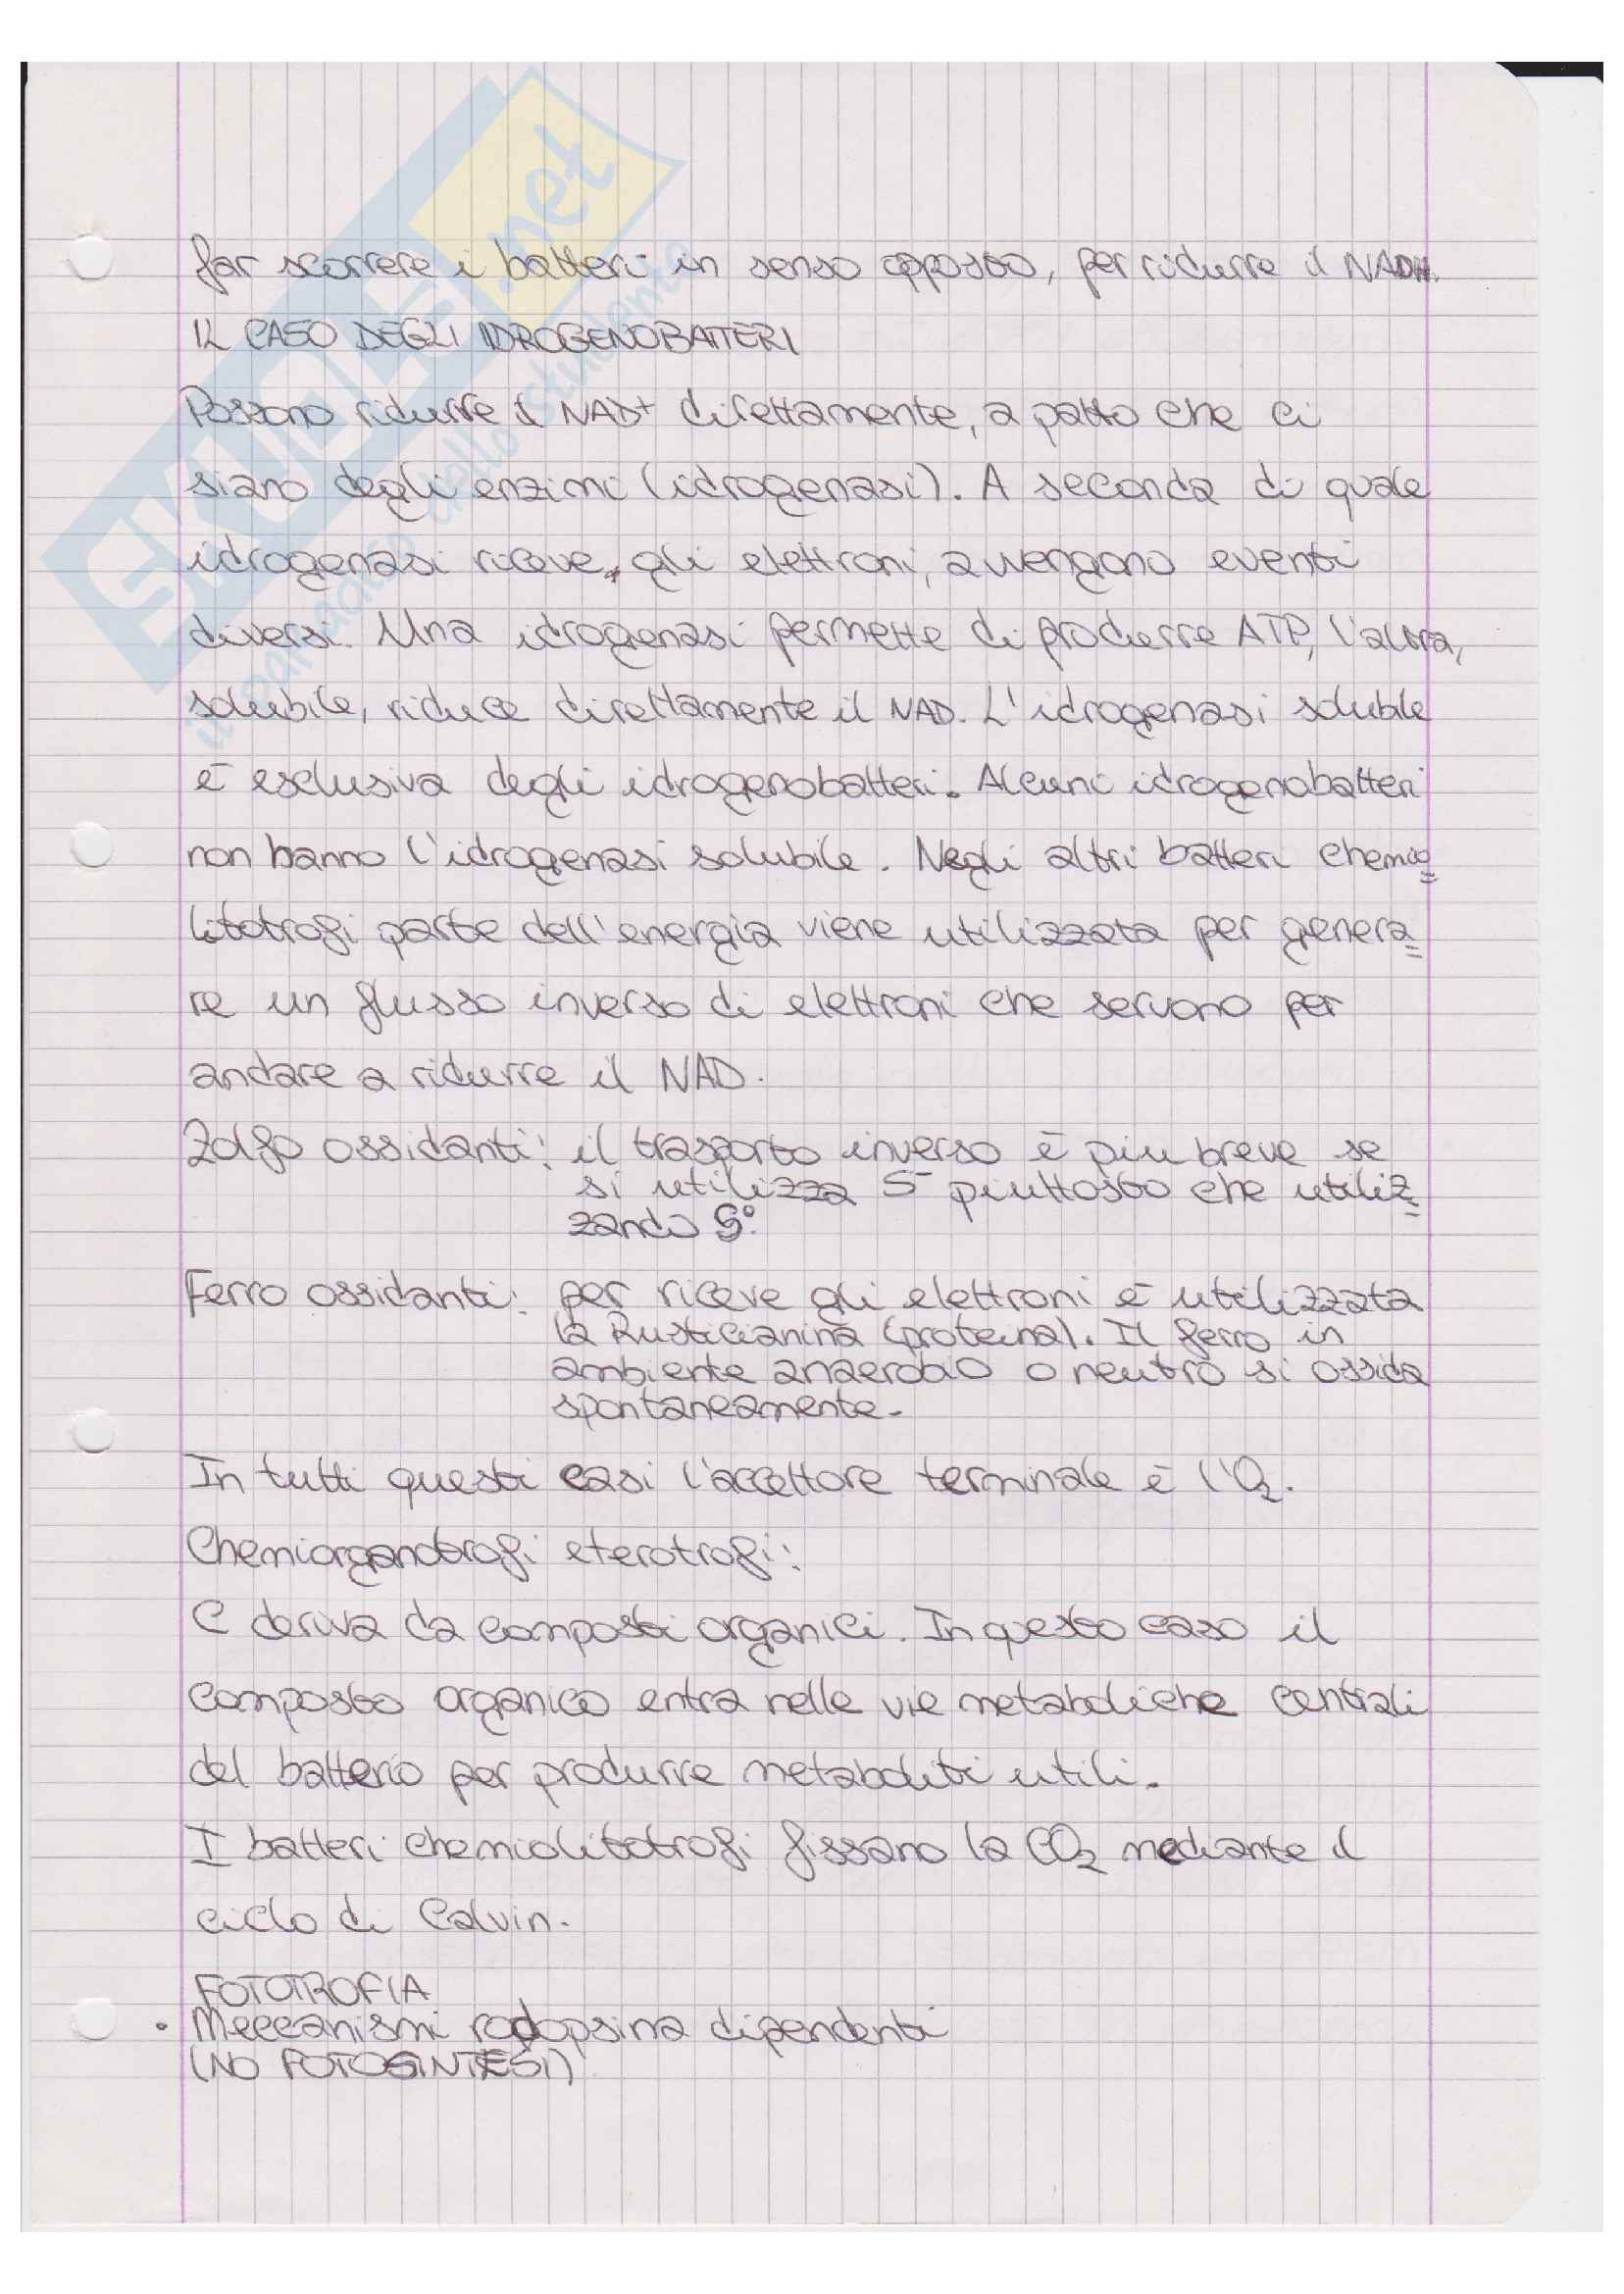 far scorrere i batteri in senso opposto, per ridurre il NADH.
IL CASO DEGLI IDROGENOBATTERI
Possono ridurre il NAD+ direttamente, a patto che ci
siano degli enzimi (idrogenasi). A seconda di quale
idrogenasi riceve gli elettroni, avvengono eventi
diversi. Una idrogenasi permette di produrre ATP, l'altra,
solubile, riduce direttamente il NAD. L'idrogenasi solubile
è esclusiva degli idrogenobatteri. Alcuni idrogenobatteri
non hanno l'idrogenasi solubile. Negli altri batteri chemio=
litotrofi parte dell'energia viene utilizzata per genera=
re un flusso inverso di elettroni che servono per
andare a ridurre il NAD.
Zolfo ossidanti: il trasporto inverso è piu breve se
si utilizza S⁻ piuttosto che utiliz=
zando S°.
Ferro ossidanti: per riceve gli elettroni è utilizzata
la Rusticianina (proteina). Il ferro in
ambiente anaerobio o neutro si ossida
spontaneamente.
In tutti questi casi l'accettore terminale è l'O₂.
Chemiorganotrofi eterotrofi:
C deriva da composti organici. In questo caso il
composto organico entra nelle vie metaboliche centrali
del batterio per produrre metaboliti utili.
I batteri chemiolitotrofi fissano la CO₂ mediante il
ciclo di Calvin.
FOTOTROFIA
• Meccanismi rodopsina dipendenti
(NO FOTOSINTESI)
SKUOLA.net
il paradiso dello studente